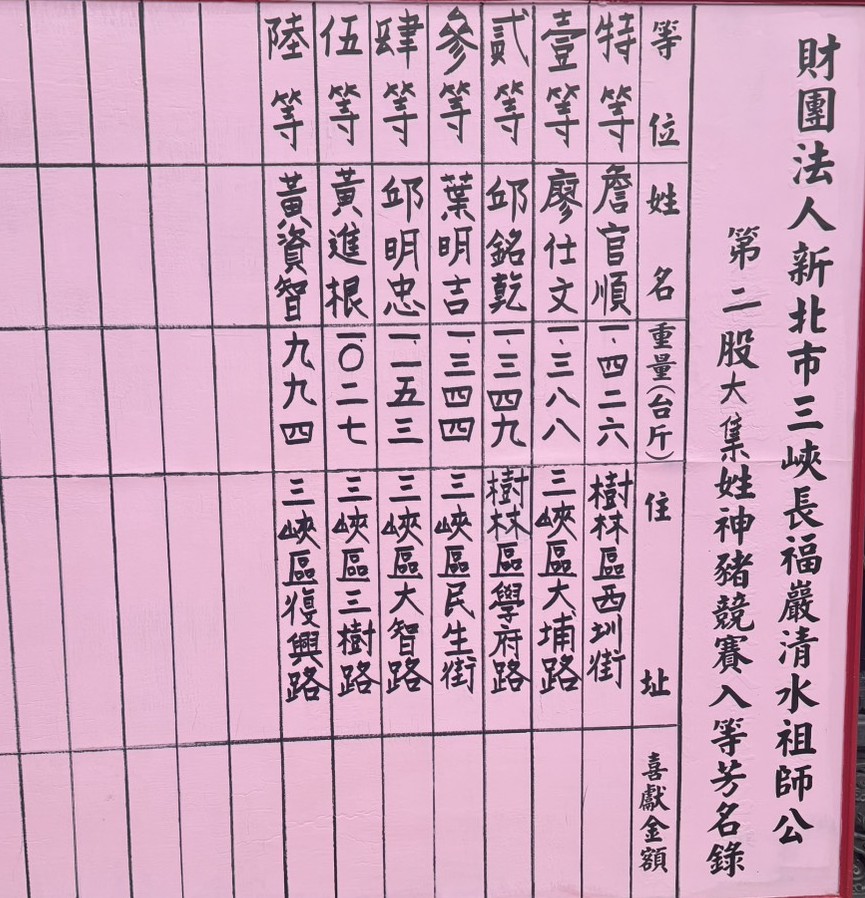 財團法人新北市三峽長福巖清水祖師公
第二股大集姓神豬競賽入等芳名錄
等位 姓名 重量(台斤) 住址 喜獻金額
特等 詹官順 一.四二六 樹林區西圳街
壹等 廖仕文 一.三八八 三峽區大埔路
貳等 邱銘乾 一.三四九 樹林區學府路
參等 葉明吉 一.三四四 三峽區民生街
肆等 邱明忠 一.一五三 三峽區大智路
伍等 黃進根 一.〇二七 三峽區三樹路
陸等 黃資智 九九四 三峽區復興路